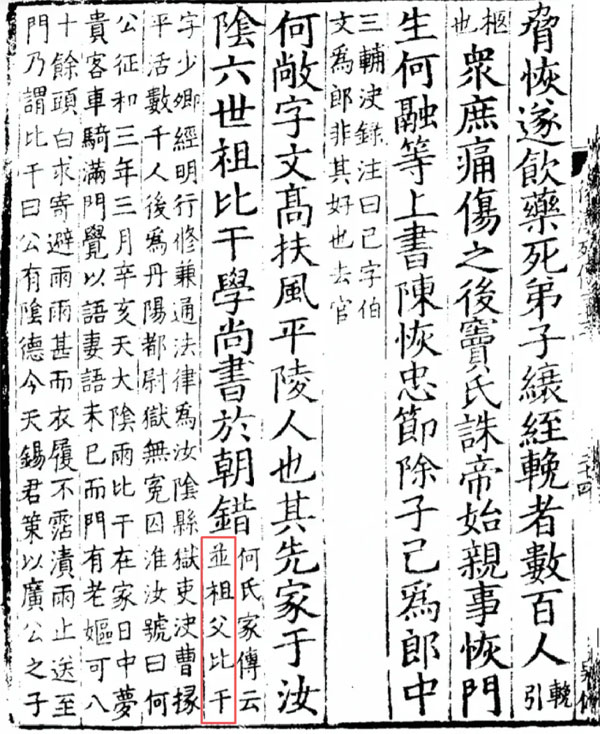 脅恢遂飲藥死弟子縗絰輓者數百人輓引
柩也眾庶痛傷之後竇氏誅帝始親事恢門
生何融等上書陳恢忠節除子己爲郎中
三輔決錄注曰己字伯
文爲郎非其好也去官
何敞字文高扶風平陵人也其先家于汝
陰六世祖比干學尚書於朝錯
何氏家傳云
並祖父比干
字少卿經明行修兼通法律爲汝陰縣獄吏決曹掾
平活數千人後爲丹陽都尉獄無冤囚淮汝號曰何
公征和三年三月辛亥天大陰雨比干在家日中夢
貴客車騎滿門覺以語妻語未已而門有老嫗可八
十餘頭白求寄避雨雨甚而衣履不霑漬雨止送至
門乃謂比干曰公有陰德今天錫君策以廣公之子